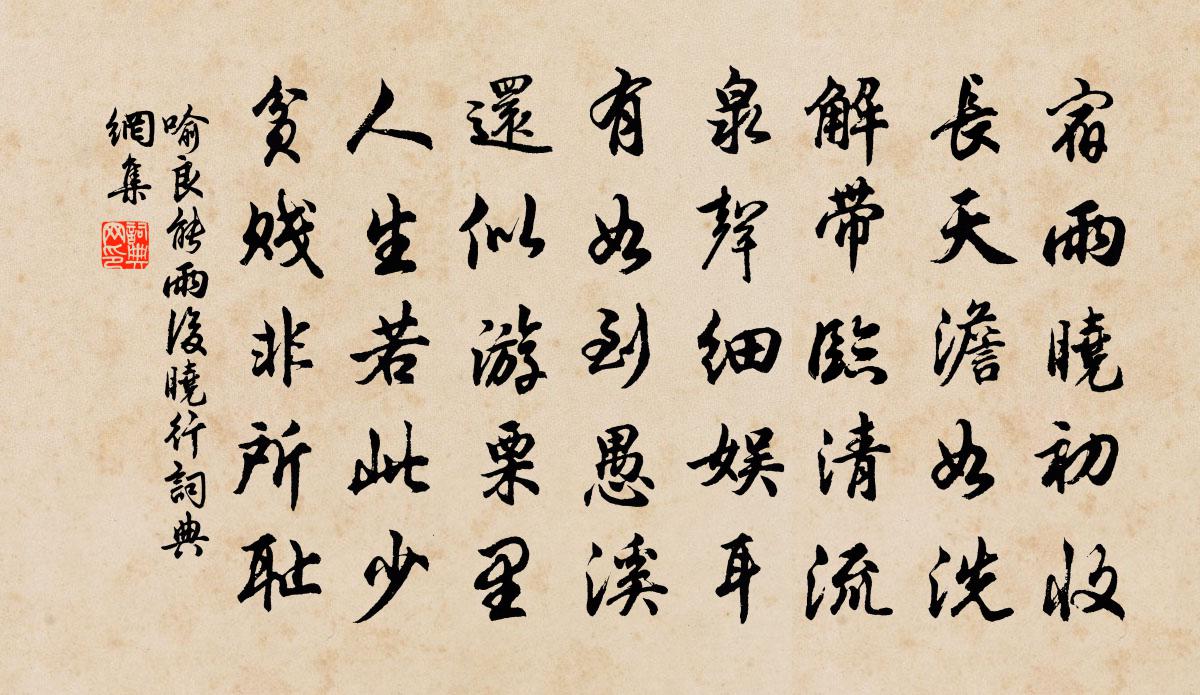 宿雨曉初收
長天澹如洗
解帶臨清流
泉聲細娛耳
有如到愚溪
還似游栗里
人生若此少
貧賤非所恥
喻良能雨後曉行詞典
網集
詞典
网印